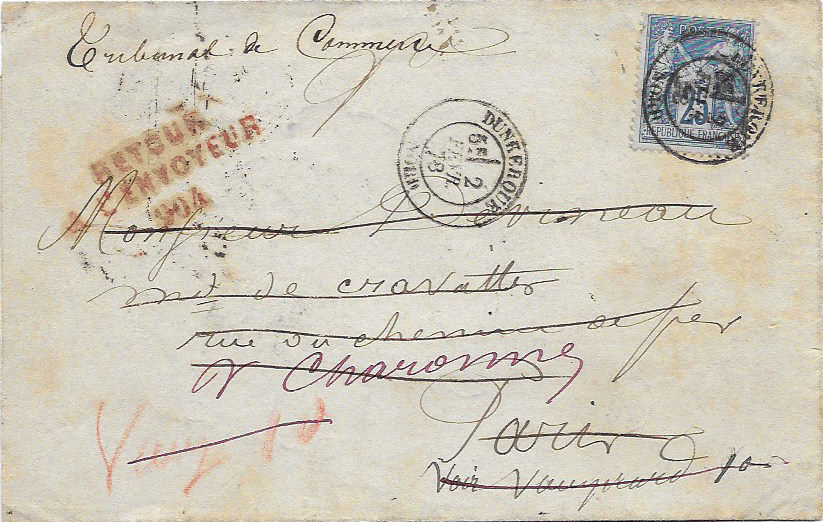 Tribunal de Commerce
POSTES
25
REPUBLIQUE FRANÇAISE
DUNKERQUE
5E 2
FEVR
78
(NORD)
RETOUR
A L'ENVOYEUR
904
Monsieur Devineau
md de cravattes
rue du chemin de fer
r Charonne
Paris
Voir Vaugirard 10
Vaug 10